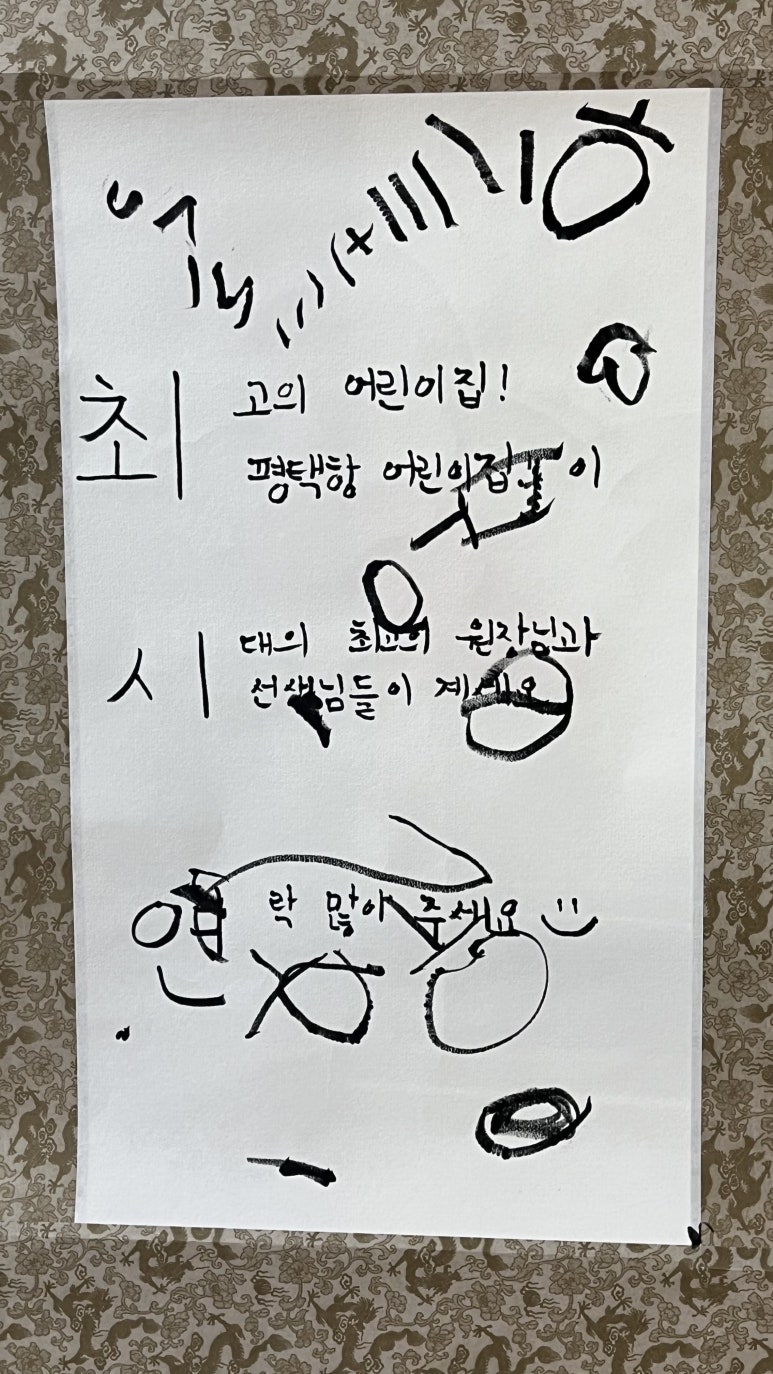 최 고의 어린이집!
평택항 어린이집 이
시 대의 최고의 원장님과
선생님들이 계세요
연 락 많이 주세요